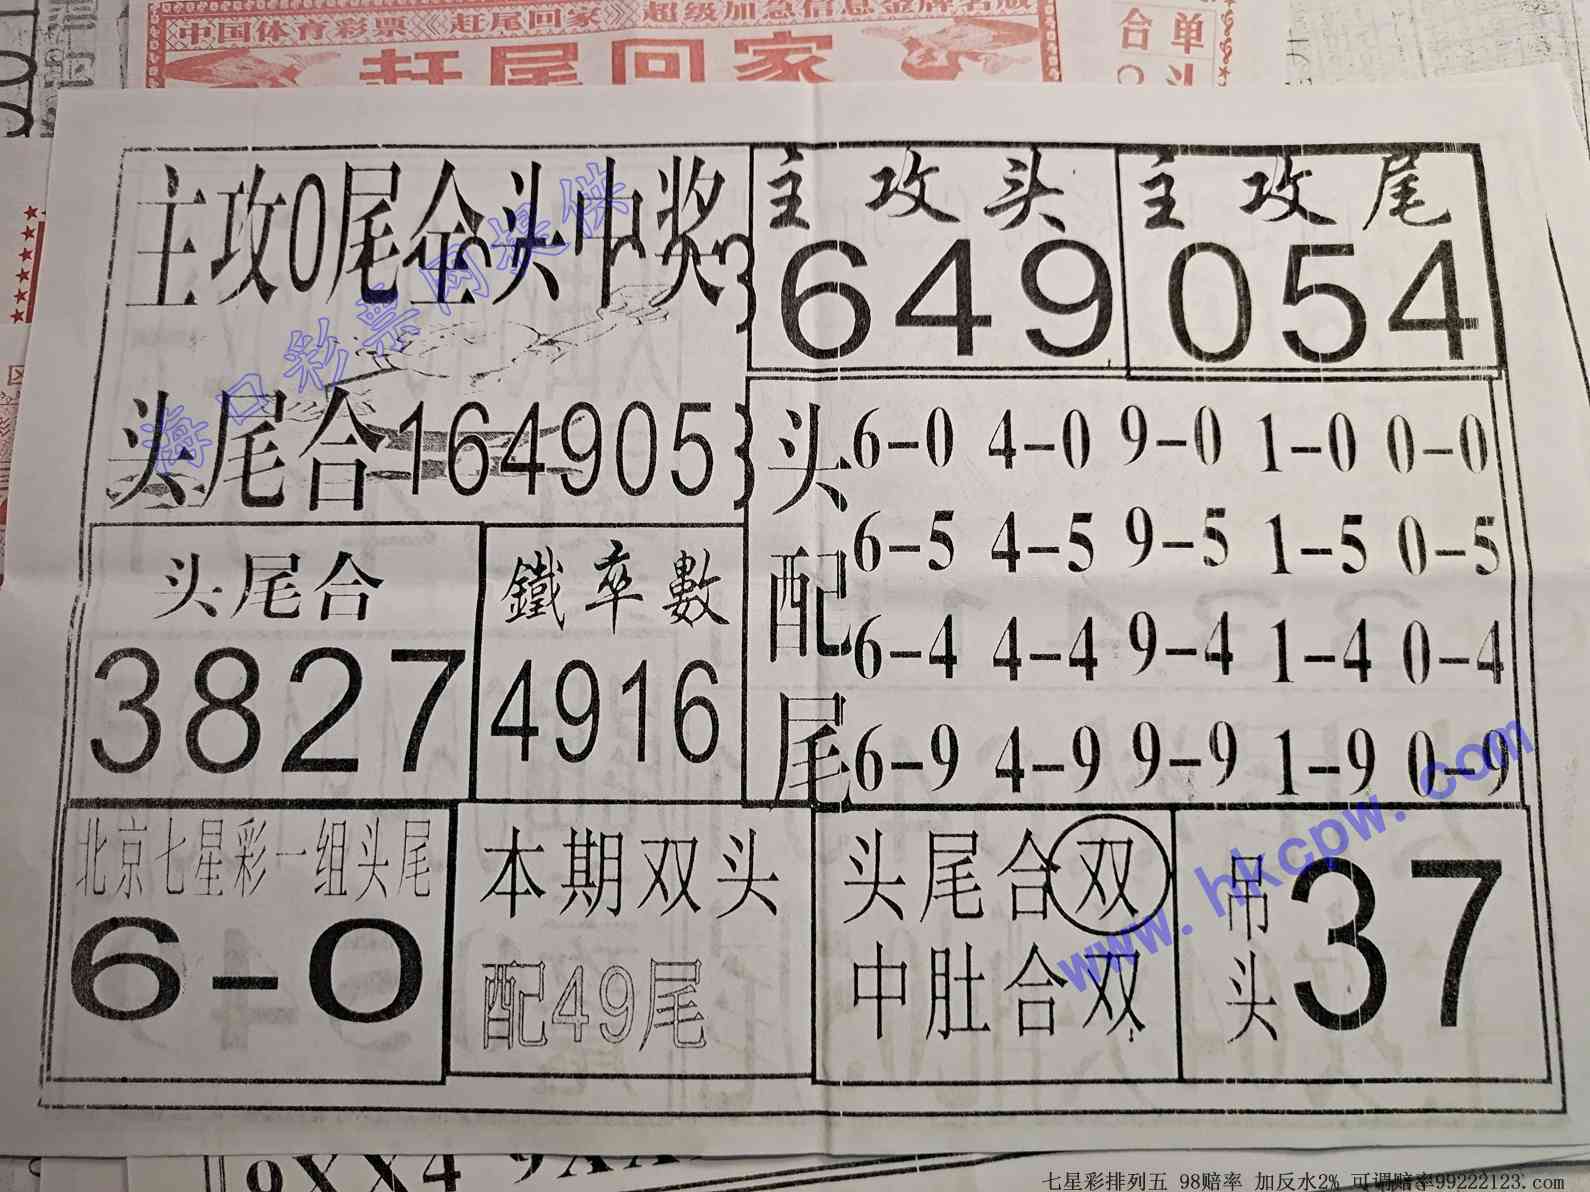 中国体育彩票《赶尾回家》超级加急信息金牌名版
赶尾回家
合单
头
主攻0尾全头中奖
头尾合164905
主攻头
649
主攻尾
054
头配尾
6-0 4-0 9-0 1-0 0-0
6-5 4-5 9-5 1-5 0-5
6-4 4-4 9-4 1-4 0-4
6-9 4-9 9-9 1-9 0-9
头尾合
3827
鐵率數
4916
北京七星彩一组头尾
6-0
本期双头
配49尾
头尾合双
中肚合双
吊头
37
海口彩票网提供
www.hkcpw.com
0XX4 9XX
七星彩排列五 98赔率 加反水2% 可调赔率99222123.com